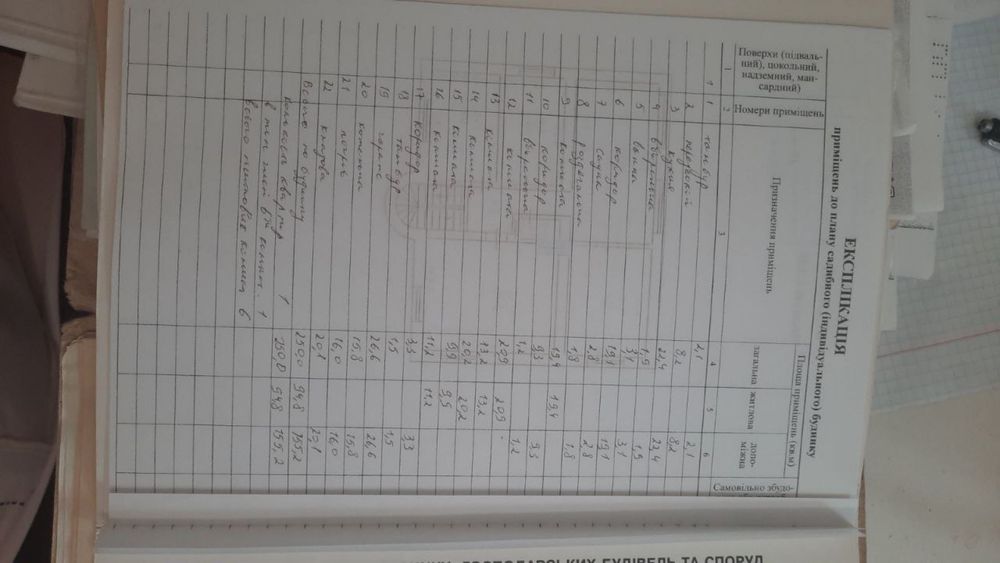 ЕКСПЛІКАЦІЯ
приміщень до плану садибного (індивідуального) будинку
Поверхи (підваль-
ний), цокольний,
надземний, ман-
сардний)
Номери приміщень
Призначення приміщень
Площа приміщень (кв.м)
загальна
житлова
допо-
міжна
Самовільно збудо-
1 2 3 4 5 6
1 1 тамбур 2,1 2,1
2 8,2 8,2
3 кухня 22,4 22,4
4 вбиральня 1,5 1,5
5 ванна 3,1 3,1
6 коридор 19,1 19,1
7 сауна 2,8 2,8
8 роздягальна 1,8 1,8
9 кімната 19,4 19,4
10 коридор 9,3 9,3
11 вбиральня 1,2 1,2
12 кімната 20,9 20,9
13 кімната 13,2 13,2
14 кімната 20,2 20,2
15 кімната 9,9 9,9
16 кімната 11,2 11,2
17 коридор 3,3 3,3
18 тамбур 1,5 1,5
19 гараж 26,6 26,6
20 котельна 15,8 15,8
21 погріб 16,0 16,0
22 кладова 20,1 20,1
Всього по будинку 250,0 94,8 155,2
кількість квартир 1 250,0 94,8 155,2
в том числі 1
всього житлових кімнат 6
ГОСПОДАРСЬКИХ БУДІВЕЛЬ ТА СПОРУД